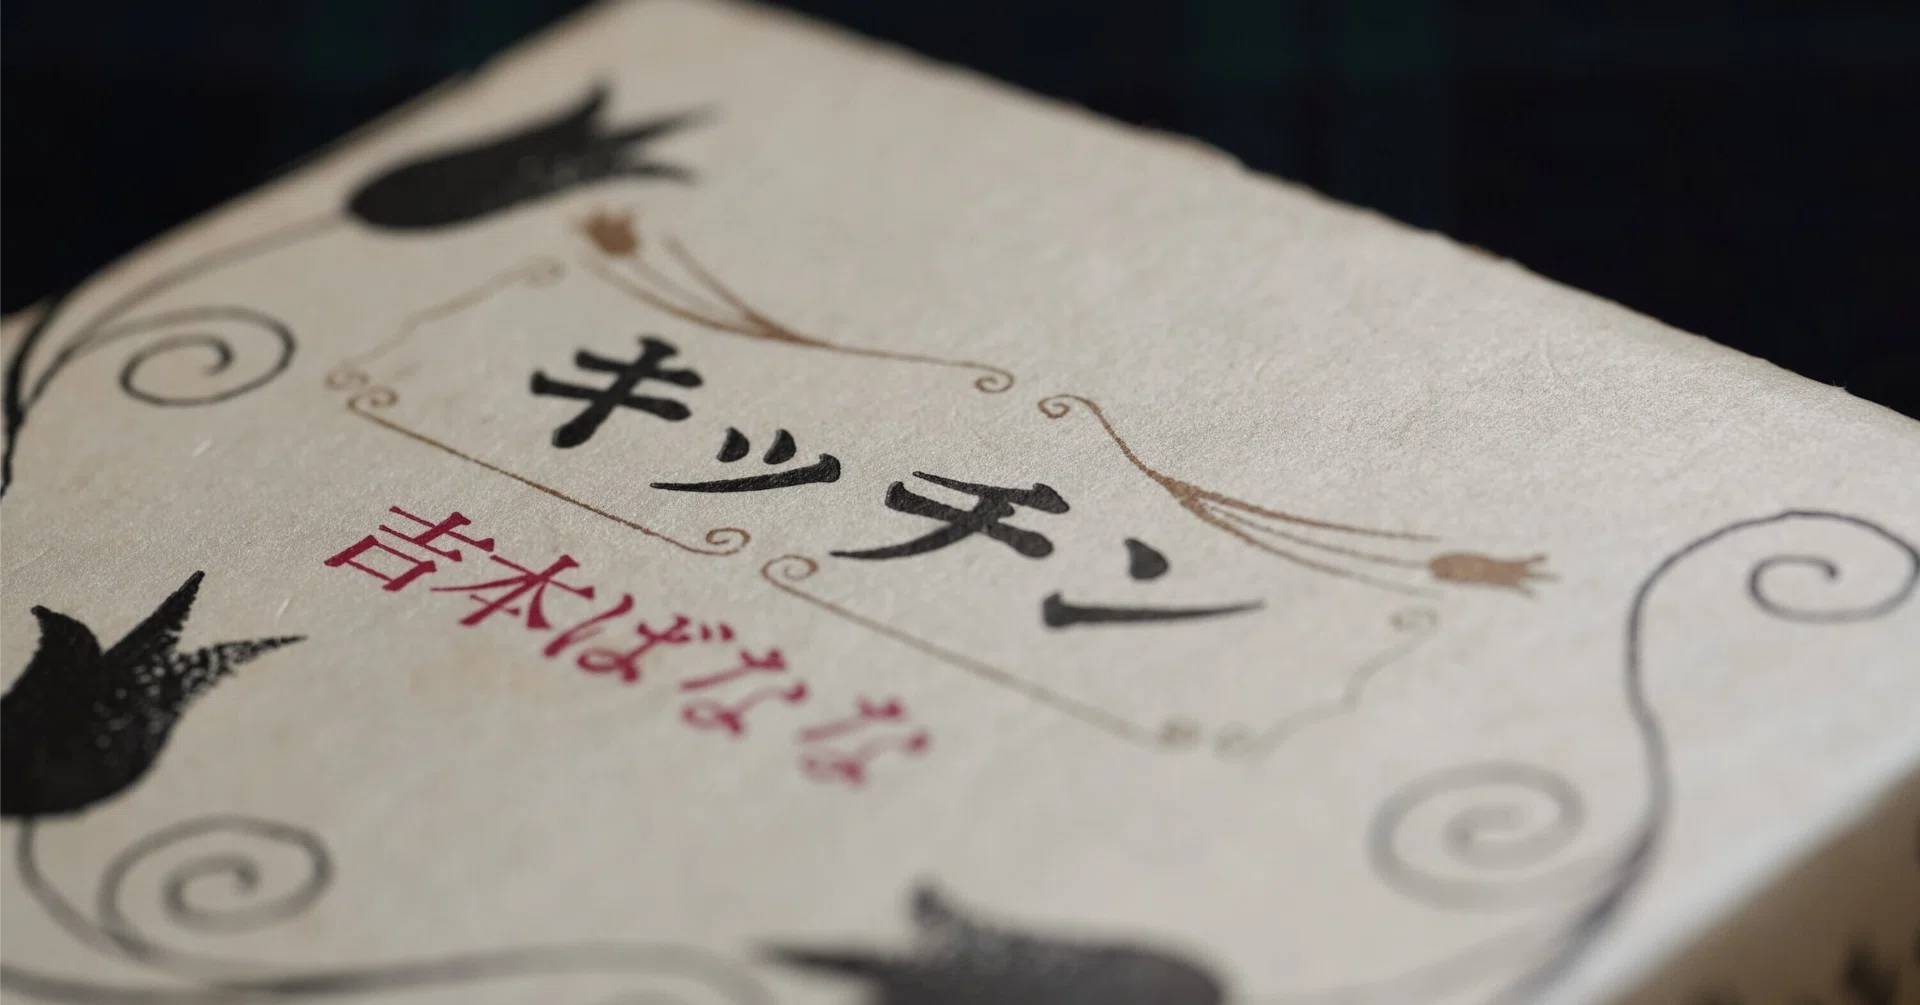 キッチン
吉本ばなな